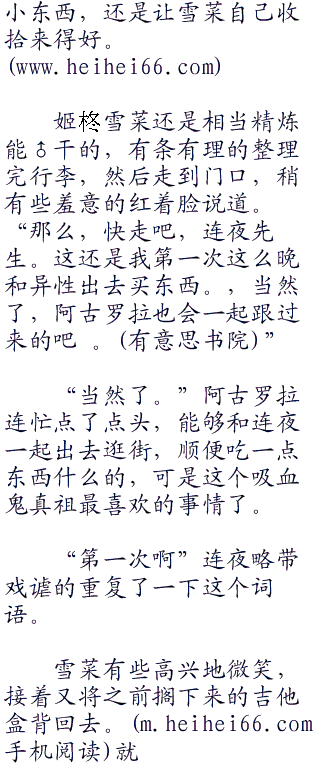 小东西，还是让雪菜自己收
拾来得好。
(www.heihei66.com)
姬柊雪菜还是相当精炼
能♂干的，有条有理的整理
完行李，然后走到门口，稍
有些羞意的红着脸说道。
“那么，快走吧，连夜先
生。这还是我第一次这么晚
和异性出去买东西。，当然
了，阿古罗拉也会一起跟过
来的吧 。(有意思书院)”
“当然了。”阿古罗拉
连忙点了点头，能够和连夜
一起出去逛街，顺便吃一点
东西什么的，可是这个吸血
鬼真祖最喜欢的事情了。
“第一次啊”连夜略带
戏谑的重复了一下这个词
语。
雪菜有些高兴地微笑，
接着又将之前搁下来的吉他
盒背回去。(m.heihei66.com
手机阅读)就